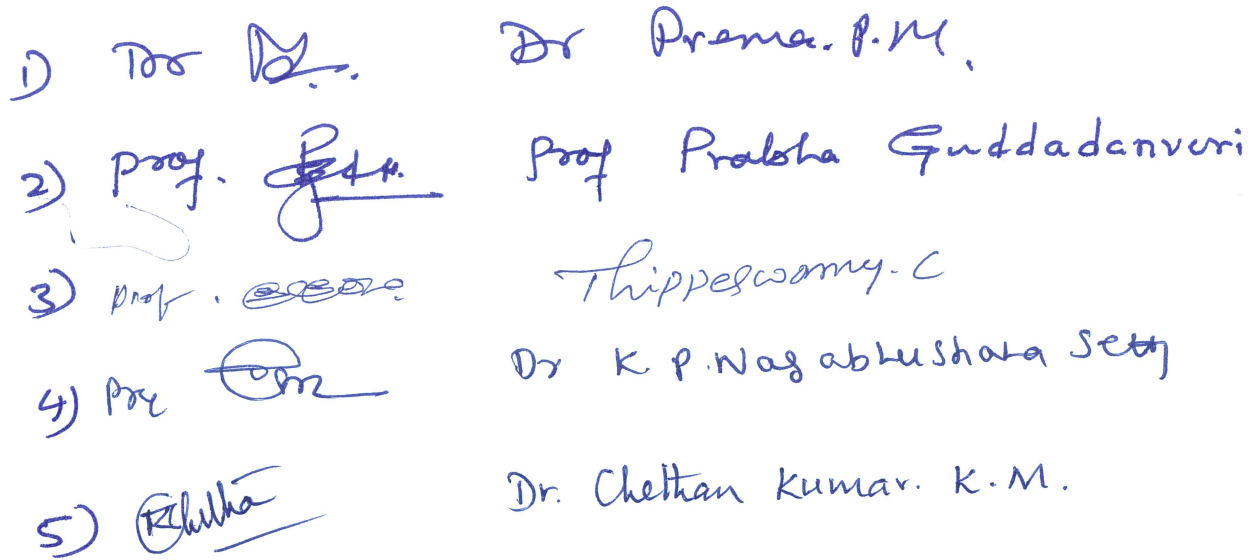 1) Dr Dr Prema. P. M.
2) Prof. Prof Prabha Guddadanveri
3) Prof. Thippeswamy. C
4) Dr K. P. Nagabhushana Setty
5) Dr. Chethan Kumar. K. M.